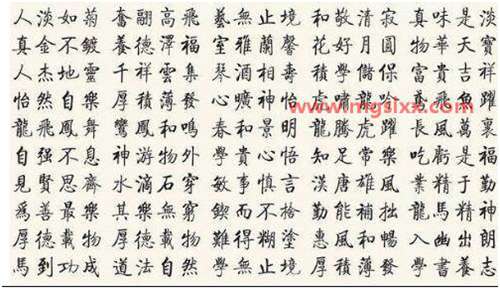 人淡如菊 奮翮高飛 藝無止境 和敬清寂 真味是淡
真金不鍍 養德澤福 室雅蘭馨 花好月圓 物華天寶
人杰地靈 千祥雲集 琴酒相壽 積學儲 富貴吉祥
怡然自樂 厚積薄發 心曠神怡 虎嘯龍吟 鳶飛魚躍
www.mgslxx.com
龍飛鳳舞 鸞鳳和鳴 春和景明 龍騰虎躍 長風萬里
自强不息 神游物外 學貴心悟 知足常樂 吃虧是福
見賢思齊 水滴石穿 敏事慎言 漢唐雄風 業精于勤
爲善最樂 其樂無窮 鍥而不捨 勤能補拙 龍馬精神
厚德載物 厚德載物 難得糊塗 惠風和暢 入幽出朗
馬到功成 道法自然 學無止境 厚積薄發 學書養志